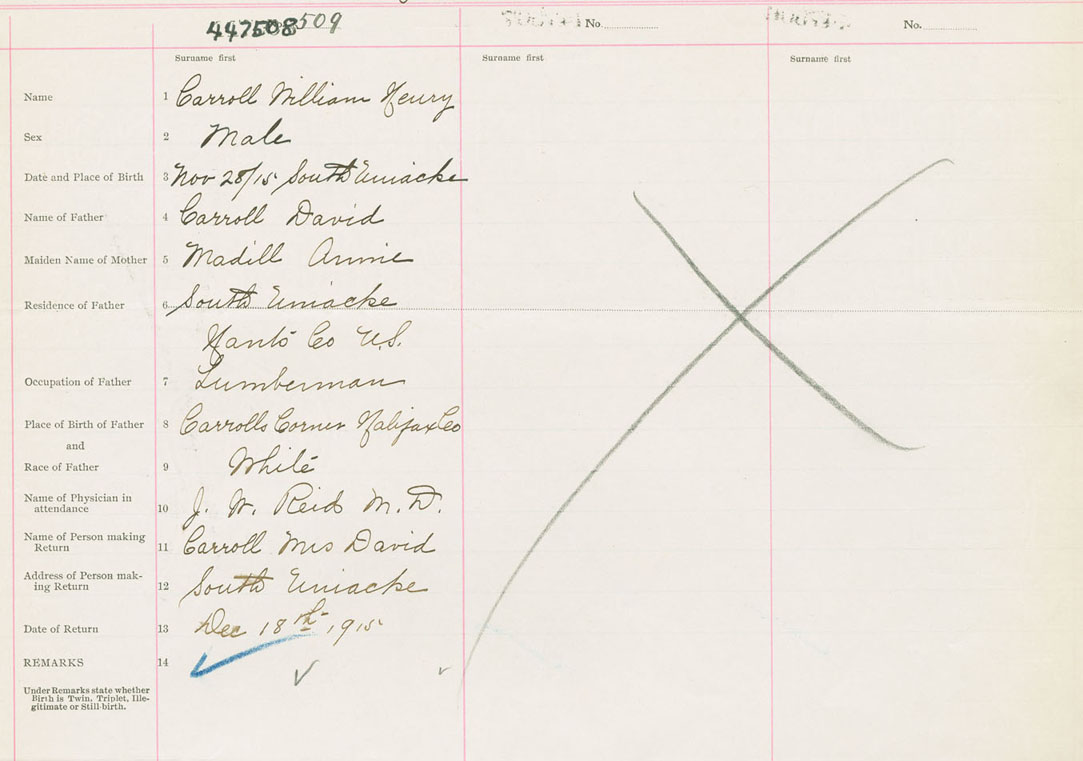 447508 509
No.
No.
Surname first
Surname first
Surname first
Name 1 Carroll William Henry
Sex 2 Male
Date and Place of Birth 3 Nov 28/15 South Uniacke
Name of Father 4 Carroll David
Maiden Name of Mother 5 Madill Annie
Residence of Father 6 South Uniacke
Hants Co N.S.
Occupation of Father 7 Lumberman
Place of Birth of Father 8 Carrolls Corner Halifax Co
and
Race of Father 9 White
Name of Physician in
attendance 10 J. W. Reid M.D.
Name of Person making
Return 11 Carroll Mrs David
Address of Person mak-
ing Return 12 South Uniacke
Date of Return 13 Dec 18th 1915
REMARKS 14
Under Remarks state whether
Birth is Twin, Triplet, Ille-
gitimate or Still-birth.